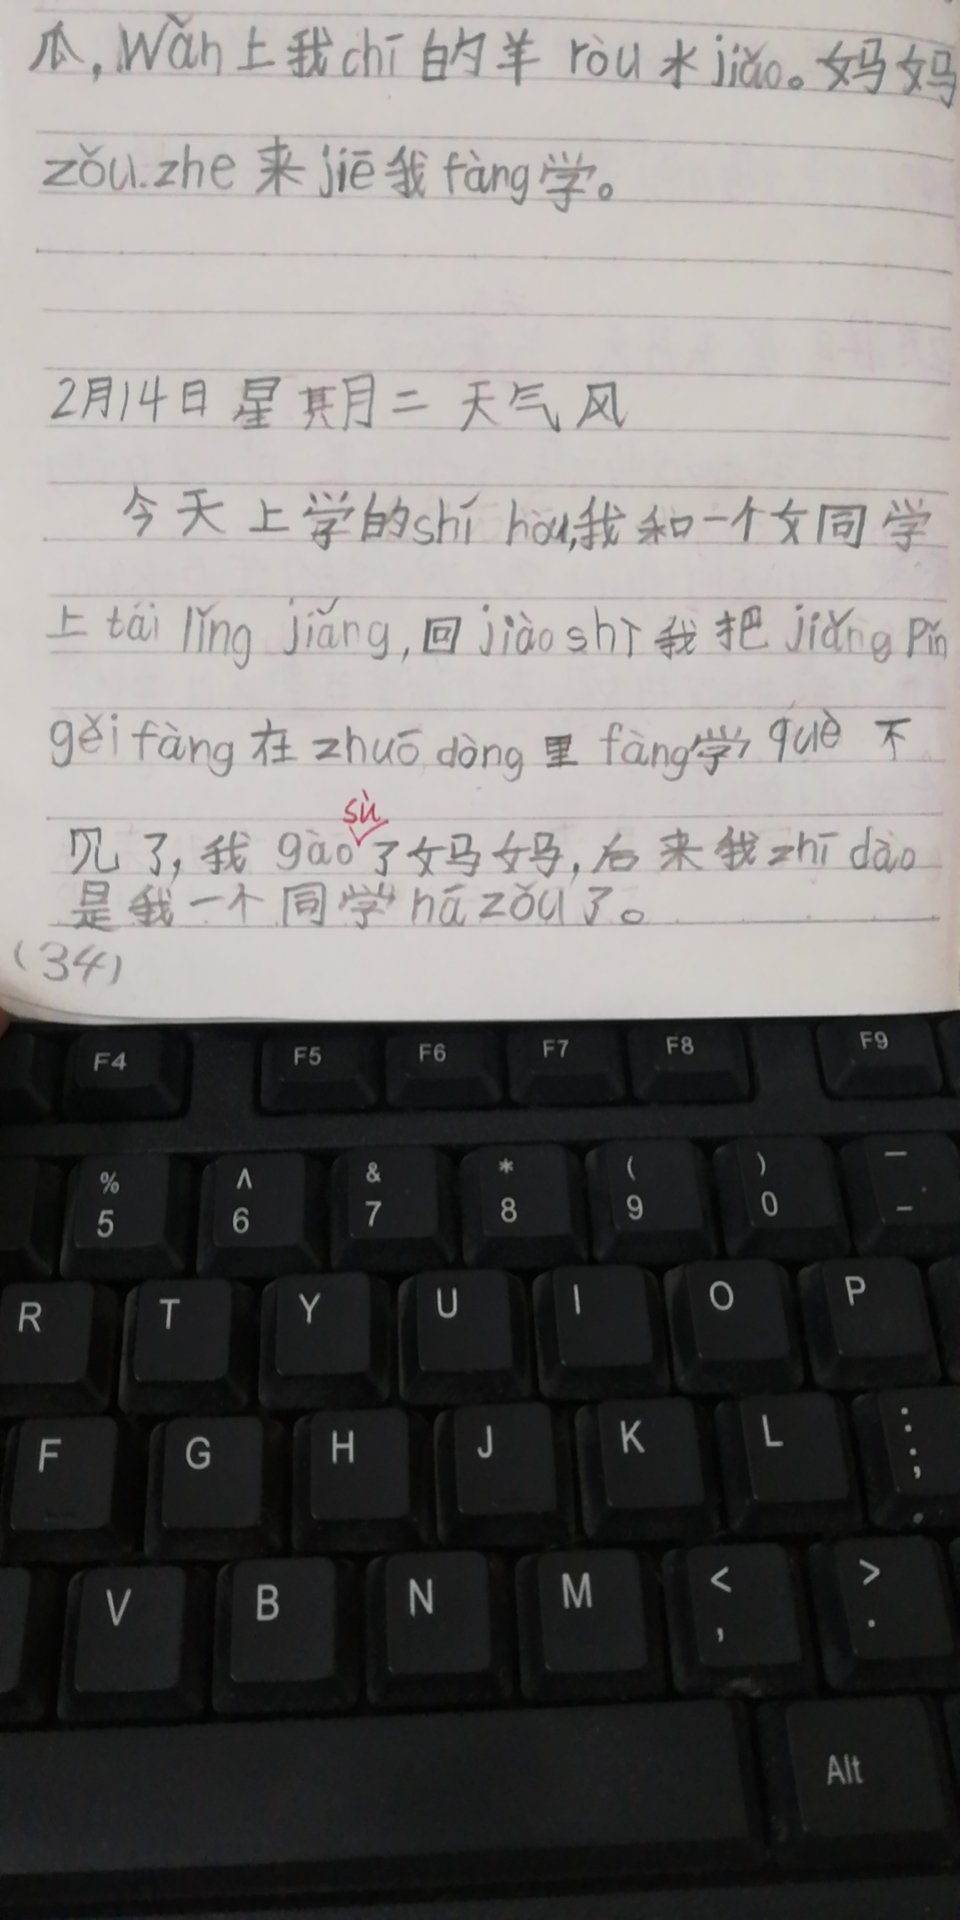 瓜，wǎn上我chī的羊ròu水jiǎo。妈妈
zǒu.zhe来jiē我fàng学。
2月14日 星期二 天气风
今天上学的shí hòu,我和一个女同学
上tái lǐng jiǎng,回jiào shì我把jiǎng pǐn
gěi fàng在zhuō dòng里fàng学què不
见了,我gào了妈妈,后来我zhī dào
sù
是我一个同学ná zǒu了。
(34)
F4 F5 F6 F7 F8 F9
% 5 ^ 6 & 7 * 8 ( 9 ) 0 — -
R T Y U I O P
F G H J K L : ;
V B N M < , > .
Alt